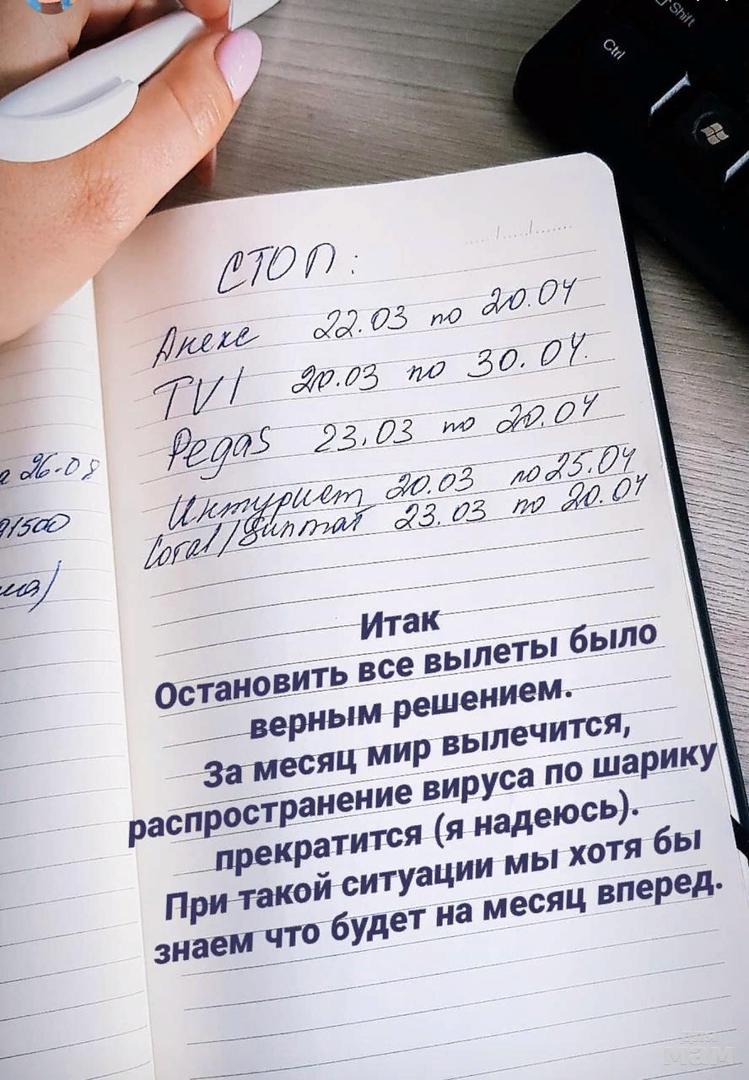 Shift
Ctrl
СТОП:
Анекс 22.03 по 20.04
TVI 20.03 по 30.04.
Pegas 23.03 по 20.04
а 26-08
Интурист 20.03 по 25.04
91500
Coral/Sunmar 23.03 по 20.04
Итак
Остановить все вылеты было
верным решением.
За месяц мир вылечится,
распространение вируса по шарику
прекратится (я надеюсь).
При такой ситуации мы хотя бы
знаем что будет на месяц вперед.
МАМ